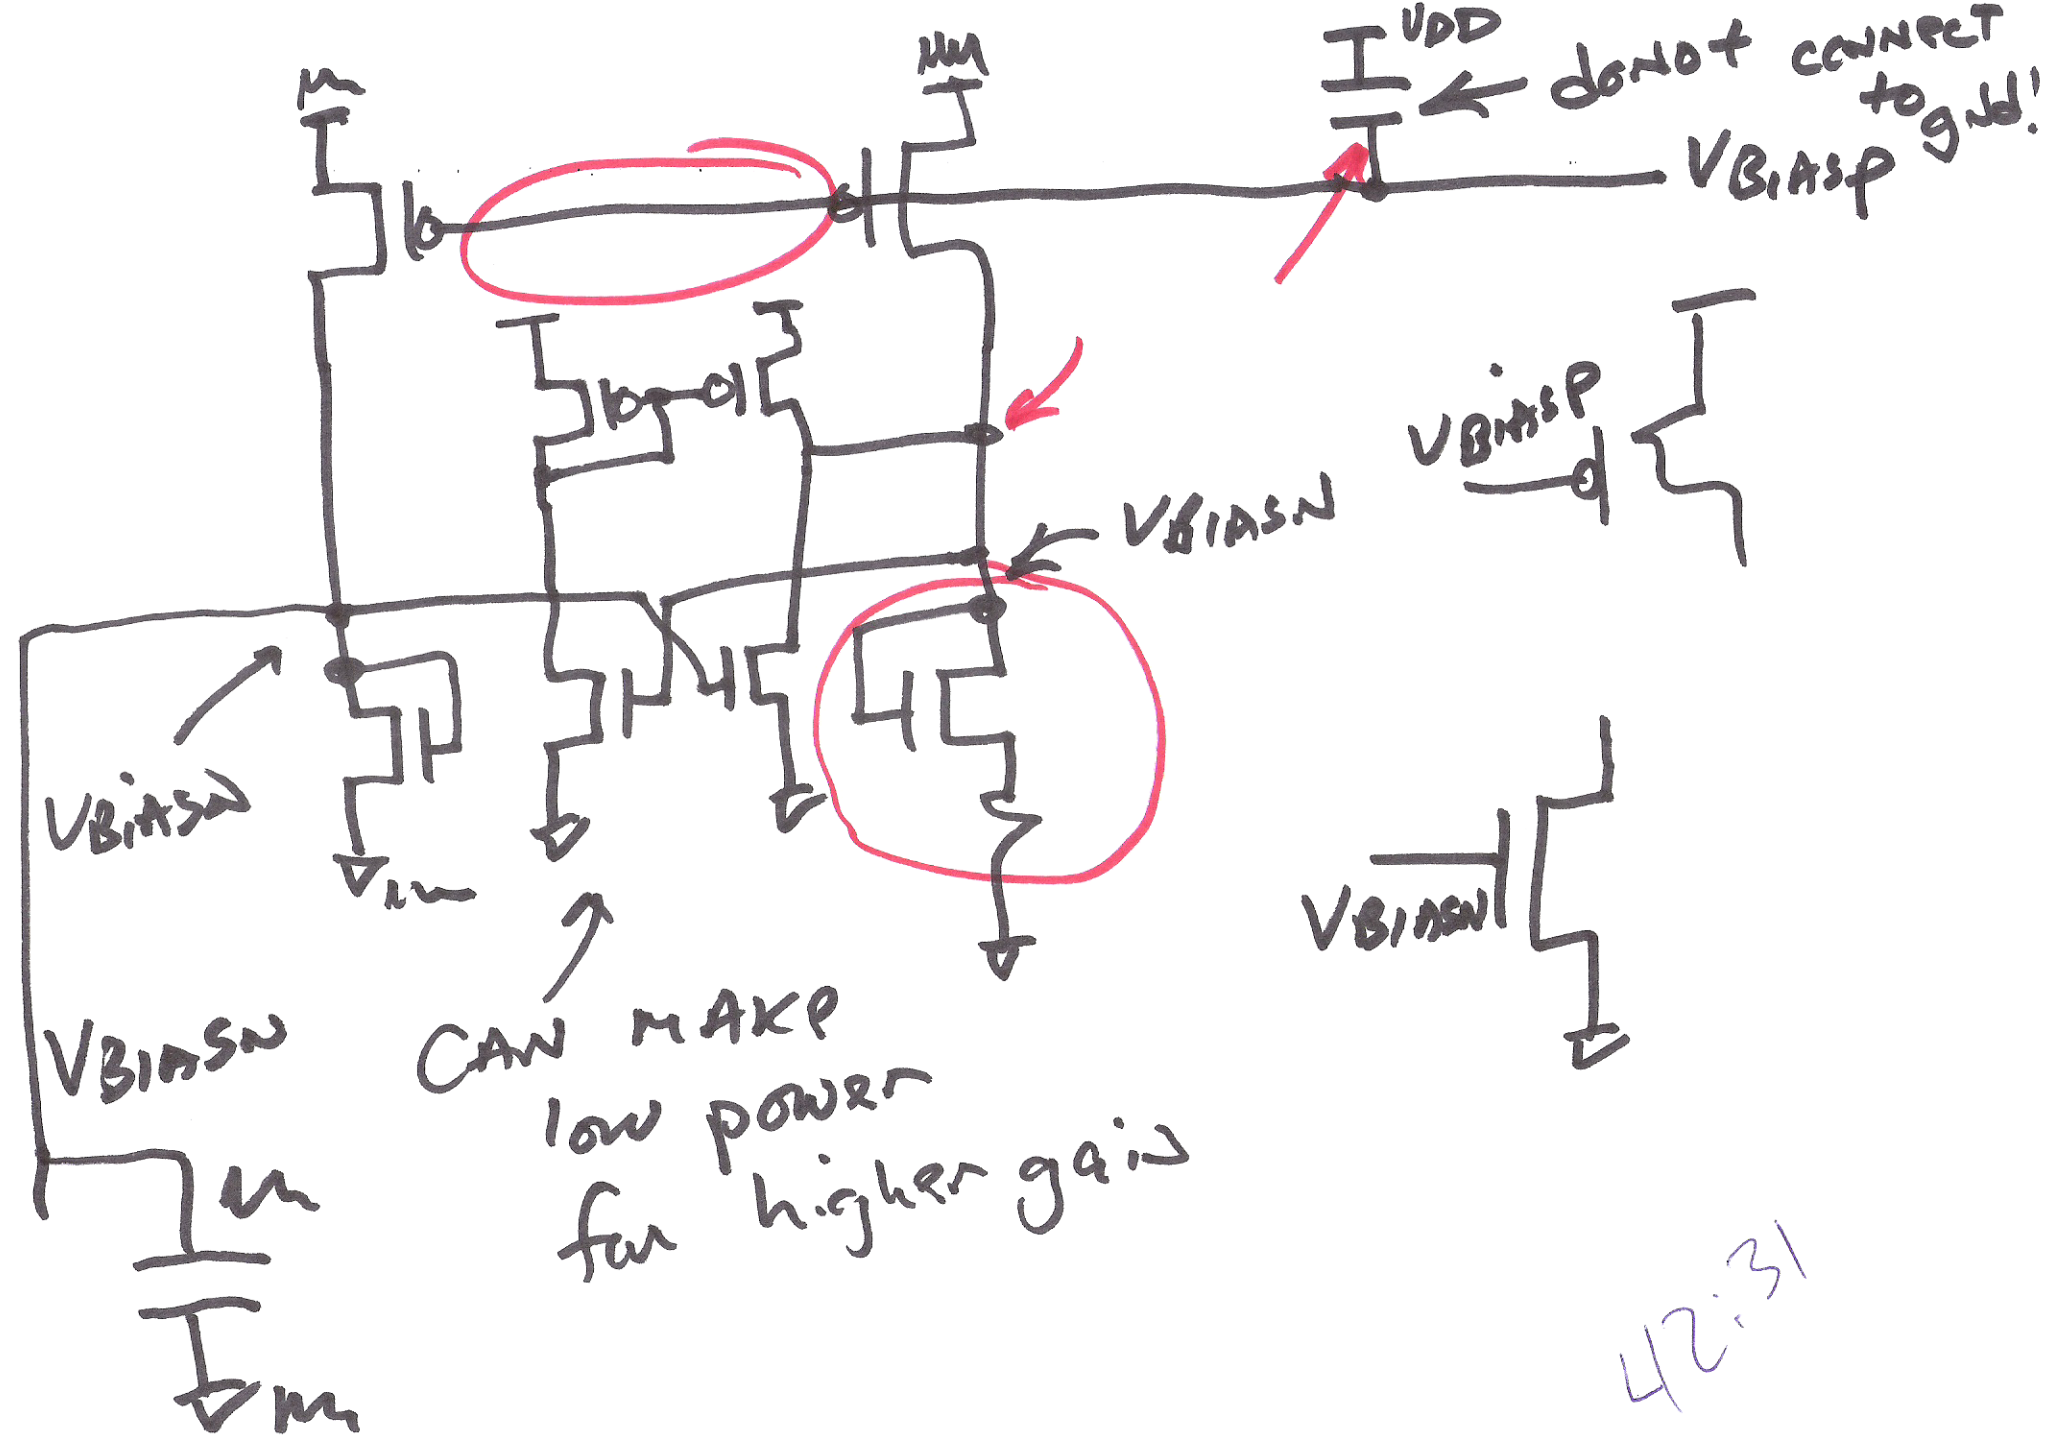 VDD
do not connect
to gnd!
VBIASP
VBIASP
VBIASN
VBIASN
VBIASN
VBIASN
CAN MAKE
low power
for higher gain
42:31